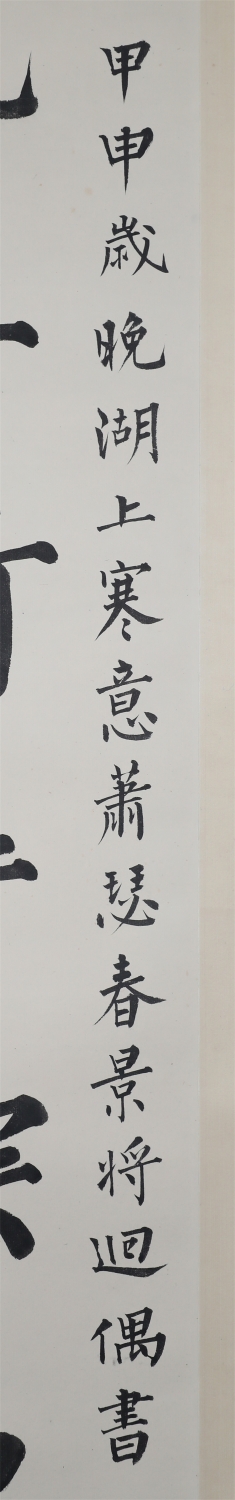 甲申歲晚湖上寒意蕭瑟春景將迴偶書